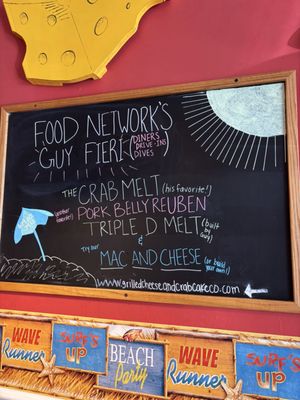 FOOD NETWORK'S
GUY FIERI (DINERS DRIVE-INS DIVES)
THE CRAB MELT (his favorite!)
(another favorite!) PORK BELLY REUBEN
TRIPLE D MELT (built by Guy)
&
Try our MAC AND CHEESE (or build your own!)
www.grilledcheeseandcrabcakeco.com
WAVE Runner
SURF'S UP
BEACH Party
WAVE Runner
SURF'S UP